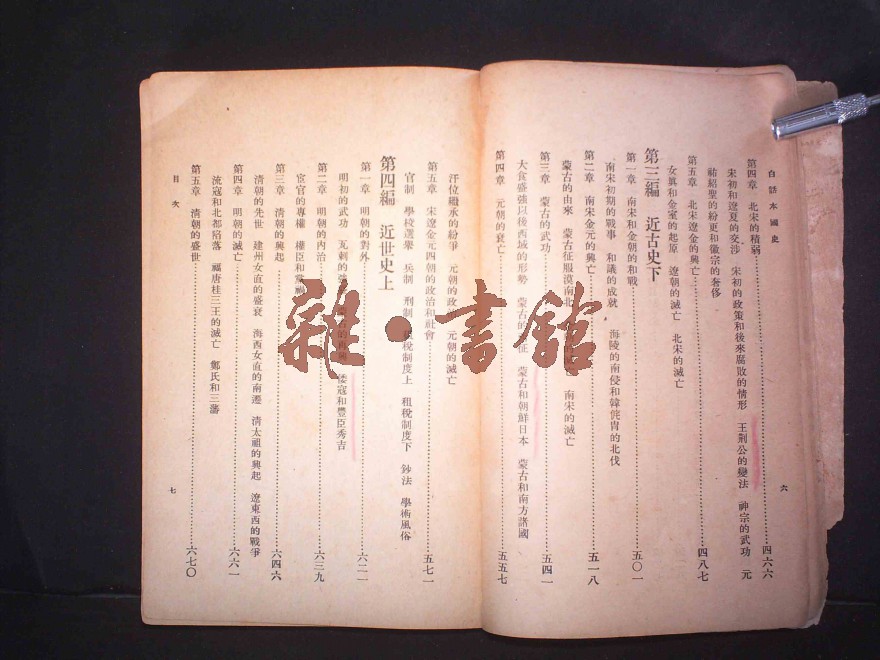 白話本國史
第四章 北宋的積弱 四六六
宋初和遼夏的交涉 宋初的政策和後來腐敗的情形 王荆公的變法 神宗的武功 元
祐紹聖的紛更和徽宗的奢侈
第五章 北宋遼金的興亡 四八七
女眞和金室的起源 遼朝的滅亡 北宋的滅亡
第三編 近古史下
第一章 南宋和金朝的和戰 五〇一
南宋初期的戰事 和議的成就 海陵的南侵和韓侂胄的北伐
第二章 南宋金元的興亡 五一八
蒙古的由來 蒙古征服漠南北 南宋的滅亡
第三章 蒙古的武功 五四一
大食盛強以後西域的形勢 蒙古的 征 蒙古和朝鮮日本 蒙古和南方諸國
第四章 元朝的衰亡 五五七
六
汗位繼承的紛爭 元朝的政 元朝的滅亡
第五章 宋遼金元四朝的政治和社會 五七一
官制 學校選舉 兵制 刑制 租稅制度上 租稅制度下 鈔法 學術風俗
第四編 近世史上
第一章 明朝的對外 六二一
明初的武功 瓦剌的強 蒙古的再興 倭寇和豐臣秀吉
第二章 明朝的內治 六三九
宦官的專權 權臣和黨禍
第三章 清朝的興起 六四六
清朝的先世 建州女直的盛衰 海西女直的南遷 清太祖的興起 遼東西的戰爭
第四章 明朝的滅亡 六六一
流寇和北都陷落 福唐桂三王的滅亡 鄭氏和三藩
第五章 清朝的盛世 六七〇
目次
七
雜·書館